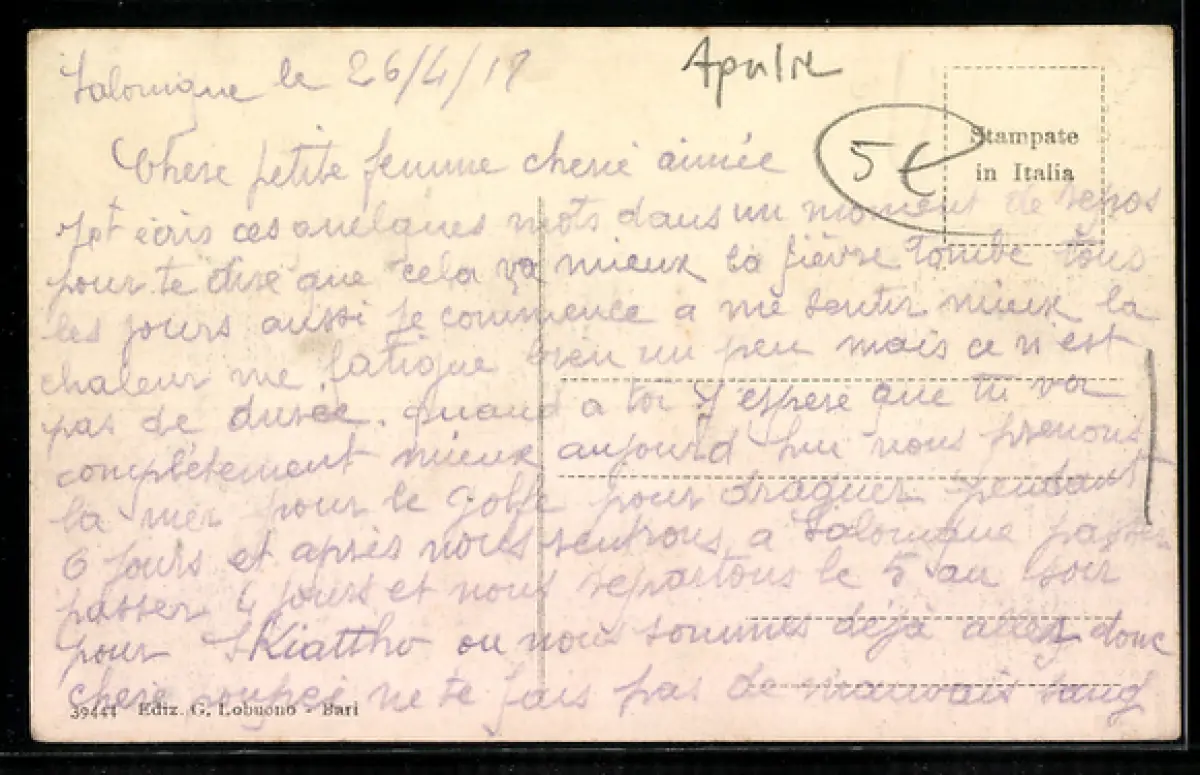 Salonique le 26/4/17
Apulie
5€
Stampate
in Italia
Chere petite femme cherie aimée
Je t écris ces quelques mots dans un moment de repos
pour te dire que cela va mieux la fièvre tombe tous
les jours aussi je commence a me sentir mieux la
chaleur me fatigue bien un peu mais ce n est
pas de durée. quand a toi j'espere que tu va
complètement mieux aujourd hui nous prenons
la mer pour le golfe pour draguer pendant
6 jours et après nous rentrons a Salonique
passer 4 jours et nous repartons le 5 au soir
pour SKiattho ou nous sommes déjà allez donc
chere poupée ne te fais pas de mauvais sang
39444 Ediz. G. Lobuono - Bari